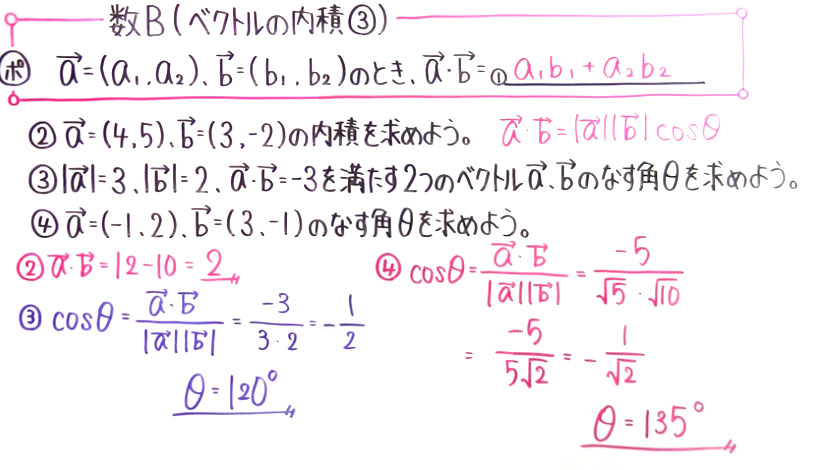 数B(ベクトルの内積③)
ポ a⃗=(a₁,a₂)、b⃗=(b₁,b₂)のとき、a⃗·b⃗=①a₁b₁+a₂b₂
② a⃗=(4,5)、b⃗=(3,-2)の内積を求めよう。 a⃗·b⃗=|a⃗||b⃗|cosθ
③|a⃗|=3、|b⃗|=2、a⃗·b⃗=-3を満たす2つのベクトルa⃗、b⃗のなす角θを求めよう。
④ a⃗=(-1,2)、b⃗=(3,-1)のなす角θを求めよう。
② a⃗·b⃗=12-10=2
③ cosθ=a⃗·b⃗/|a⃗||b⃗|=-3/3·2=-1/2
θ=120°
④ cosθ=a⃗·b⃗/|a⃗||b⃗|=-5/√5·√10
=-5/5√2=-1/√2
θ=135°